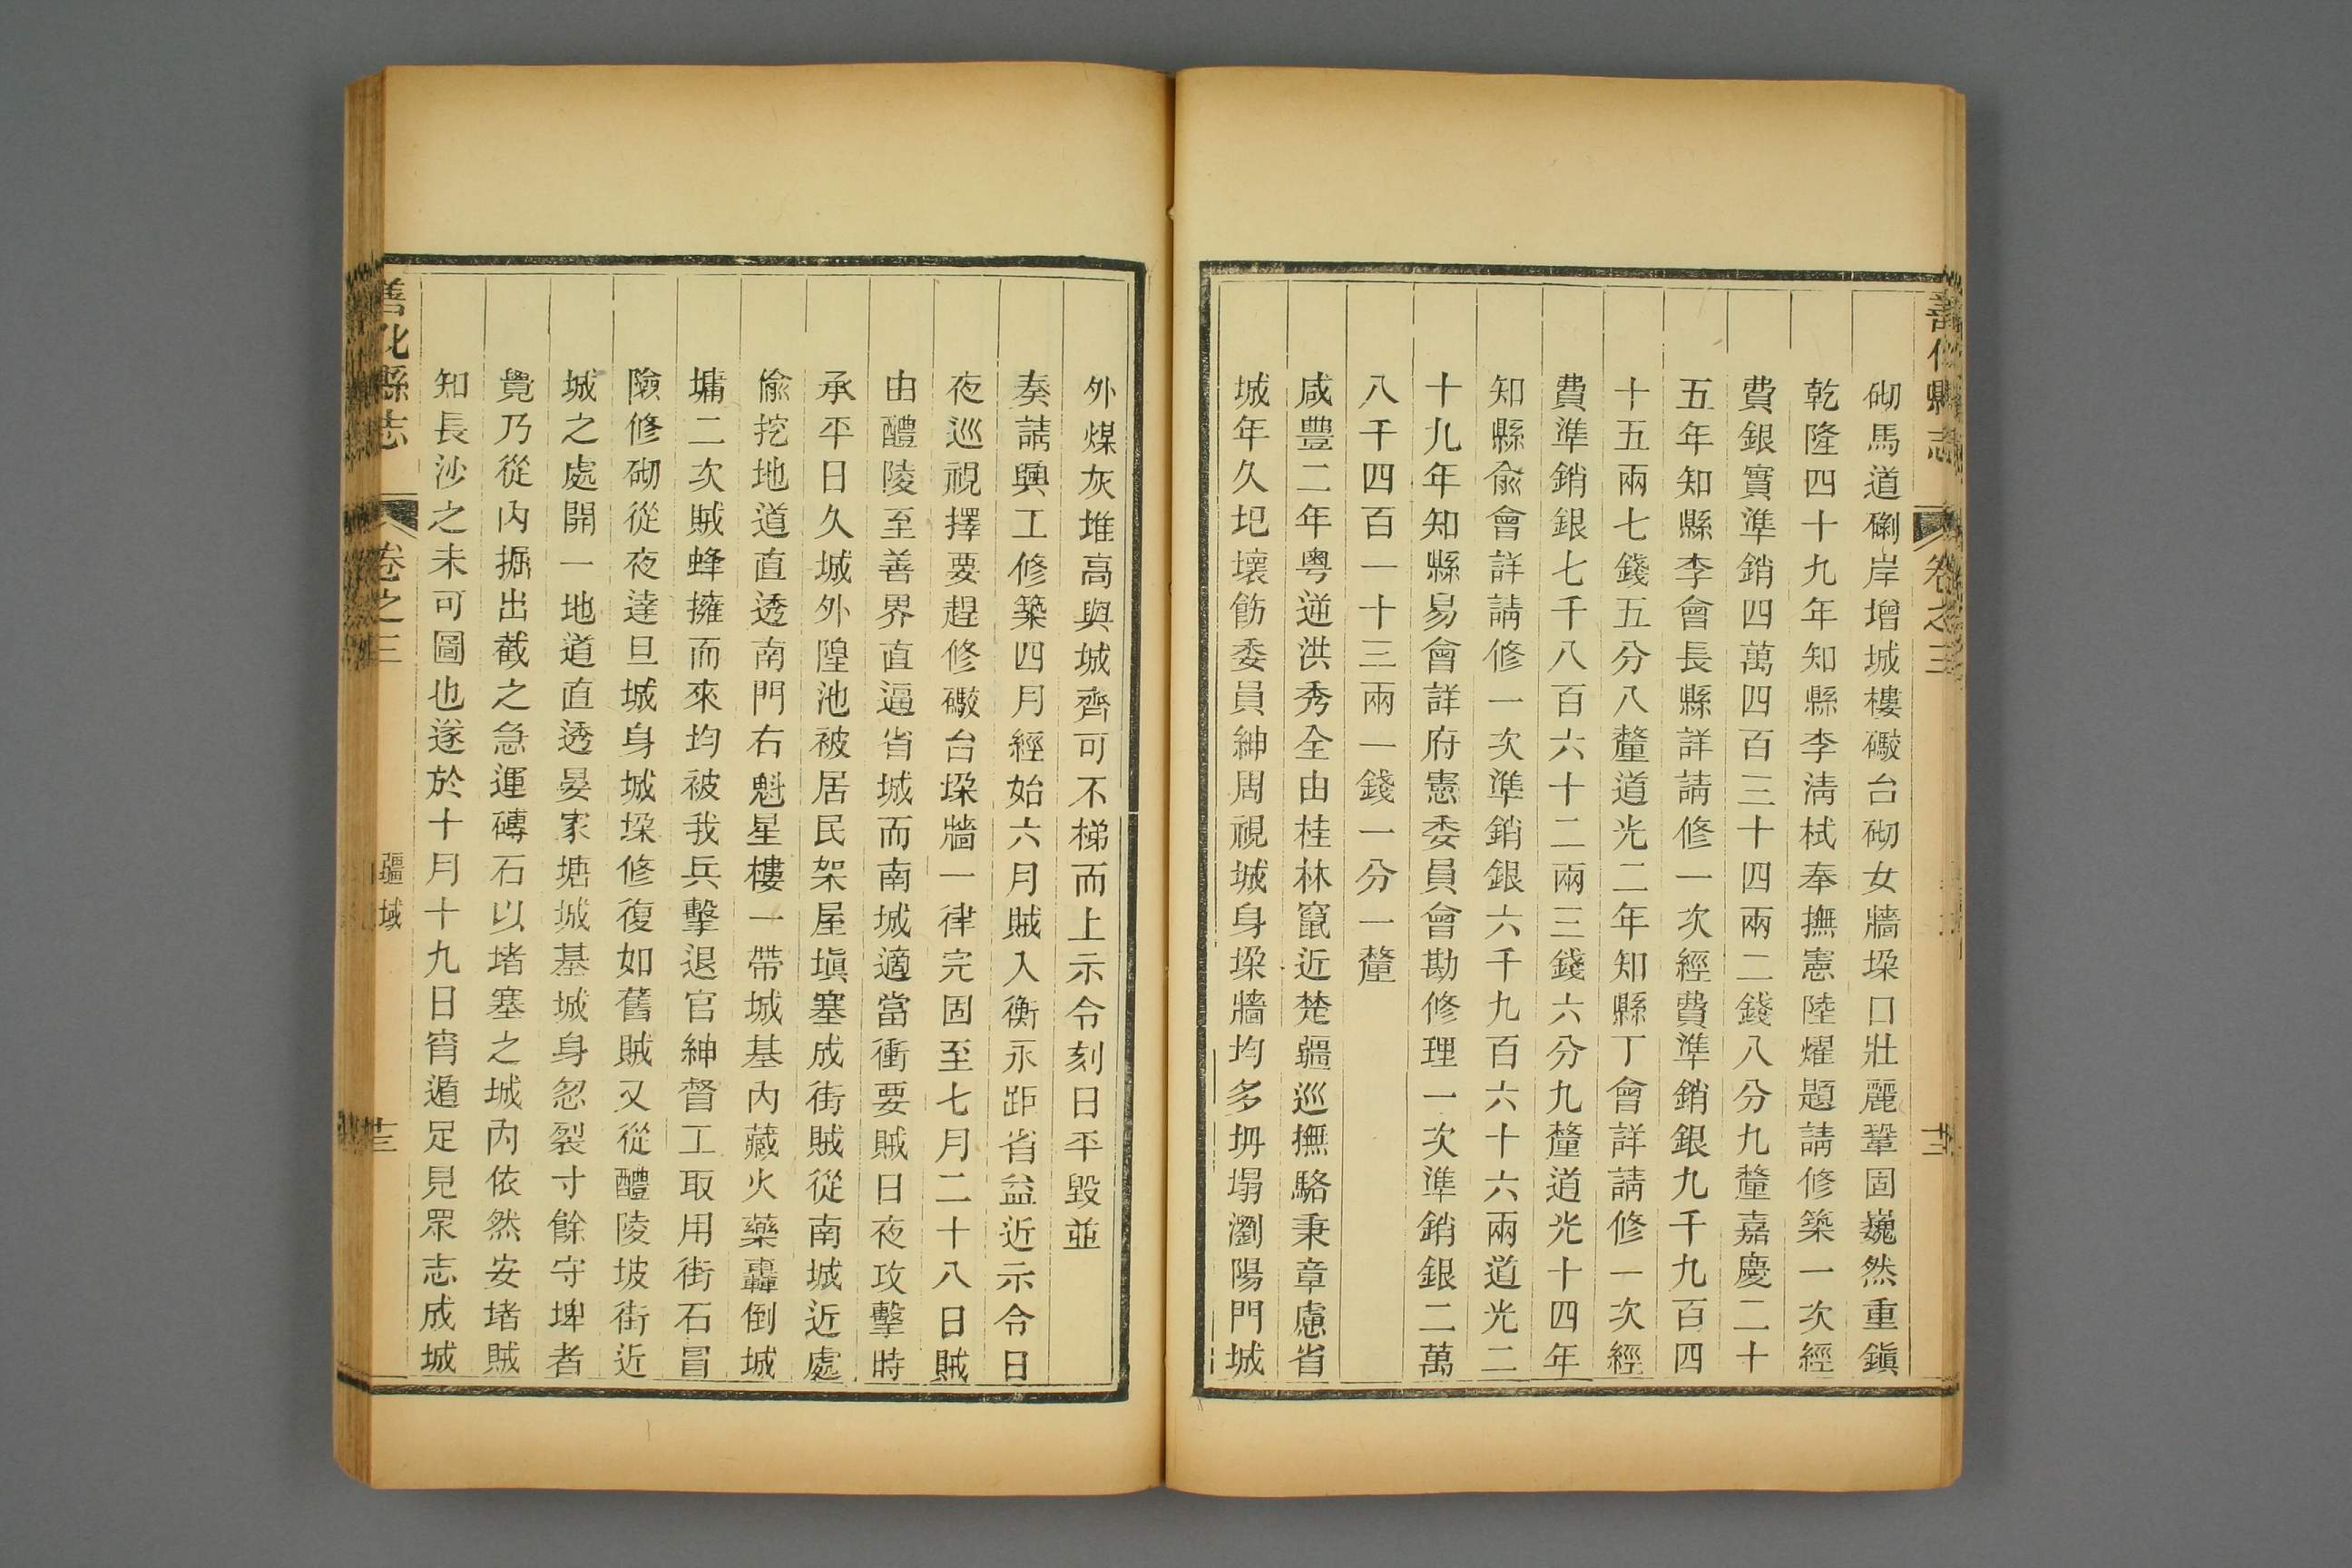 善化縣志 卷之三
砌馬道磡岸增城樓礮台砌女牆垛口壯麗鞏固巍然重鎮
乾隆四十九年知縣李淸栻奉撫憲陸燿題請修築一次經
費銀實準銷四萬四百三十四兩二錢八分九釐嘉慶二十
五年知縣李會長縣詳請修一次經費準銷銀九千九百四
十五兩七錢五分八釐道光二年知縣丁會詳請修一次經
費準銷銀七千八百六十二兩三錢六分九釐道光十四年
知縣俞會詳請修一次準銷銀六千九百六十六兩道光二
十九年知縣易會詳府憲委員會勘修理一次準銷銀二萬
八千四百一十三兩一錢一分一釐
咸豐二年粤逆洪秀全由桂林竄近楚疆巡撫駱秉章慮省
城年久圮壞飭委員紳周視城身垛牆均多坍塌瀏陽門城
外煤灰堆高與城齊可不梯而上示令刻日平毀並
奏請興工修築四月經始六月賊入衡永距省益近示令日
夜巡視擇要趕修礮台垛牆一律完固至七月二十八日賊
由醴陵至善界直逼省城而南城適當衝要賊日夜攻擊時
承平日久城外隍池被居民架屋塡塞成街賊從南城近處
偷挖地道直透南門右魁星樓一帶城基內藏火藥轟倒城
墉二次賊蜂擁而來均被我兵擊退官紳督工取用街石冒
險修砌從夜達旦城身城垛修復如舊賊又從醴陵坡街近
城之處開一地道直透晏家塘城基城身忽裂寸餘守埤者
覺乃從內掘出截之急運磚石以堵塞之城內依然安堵賊
知長沙之未可圖也遂於十月十九日宵遁足見眾志成城
善化縣志 卷之三 疆域 十三